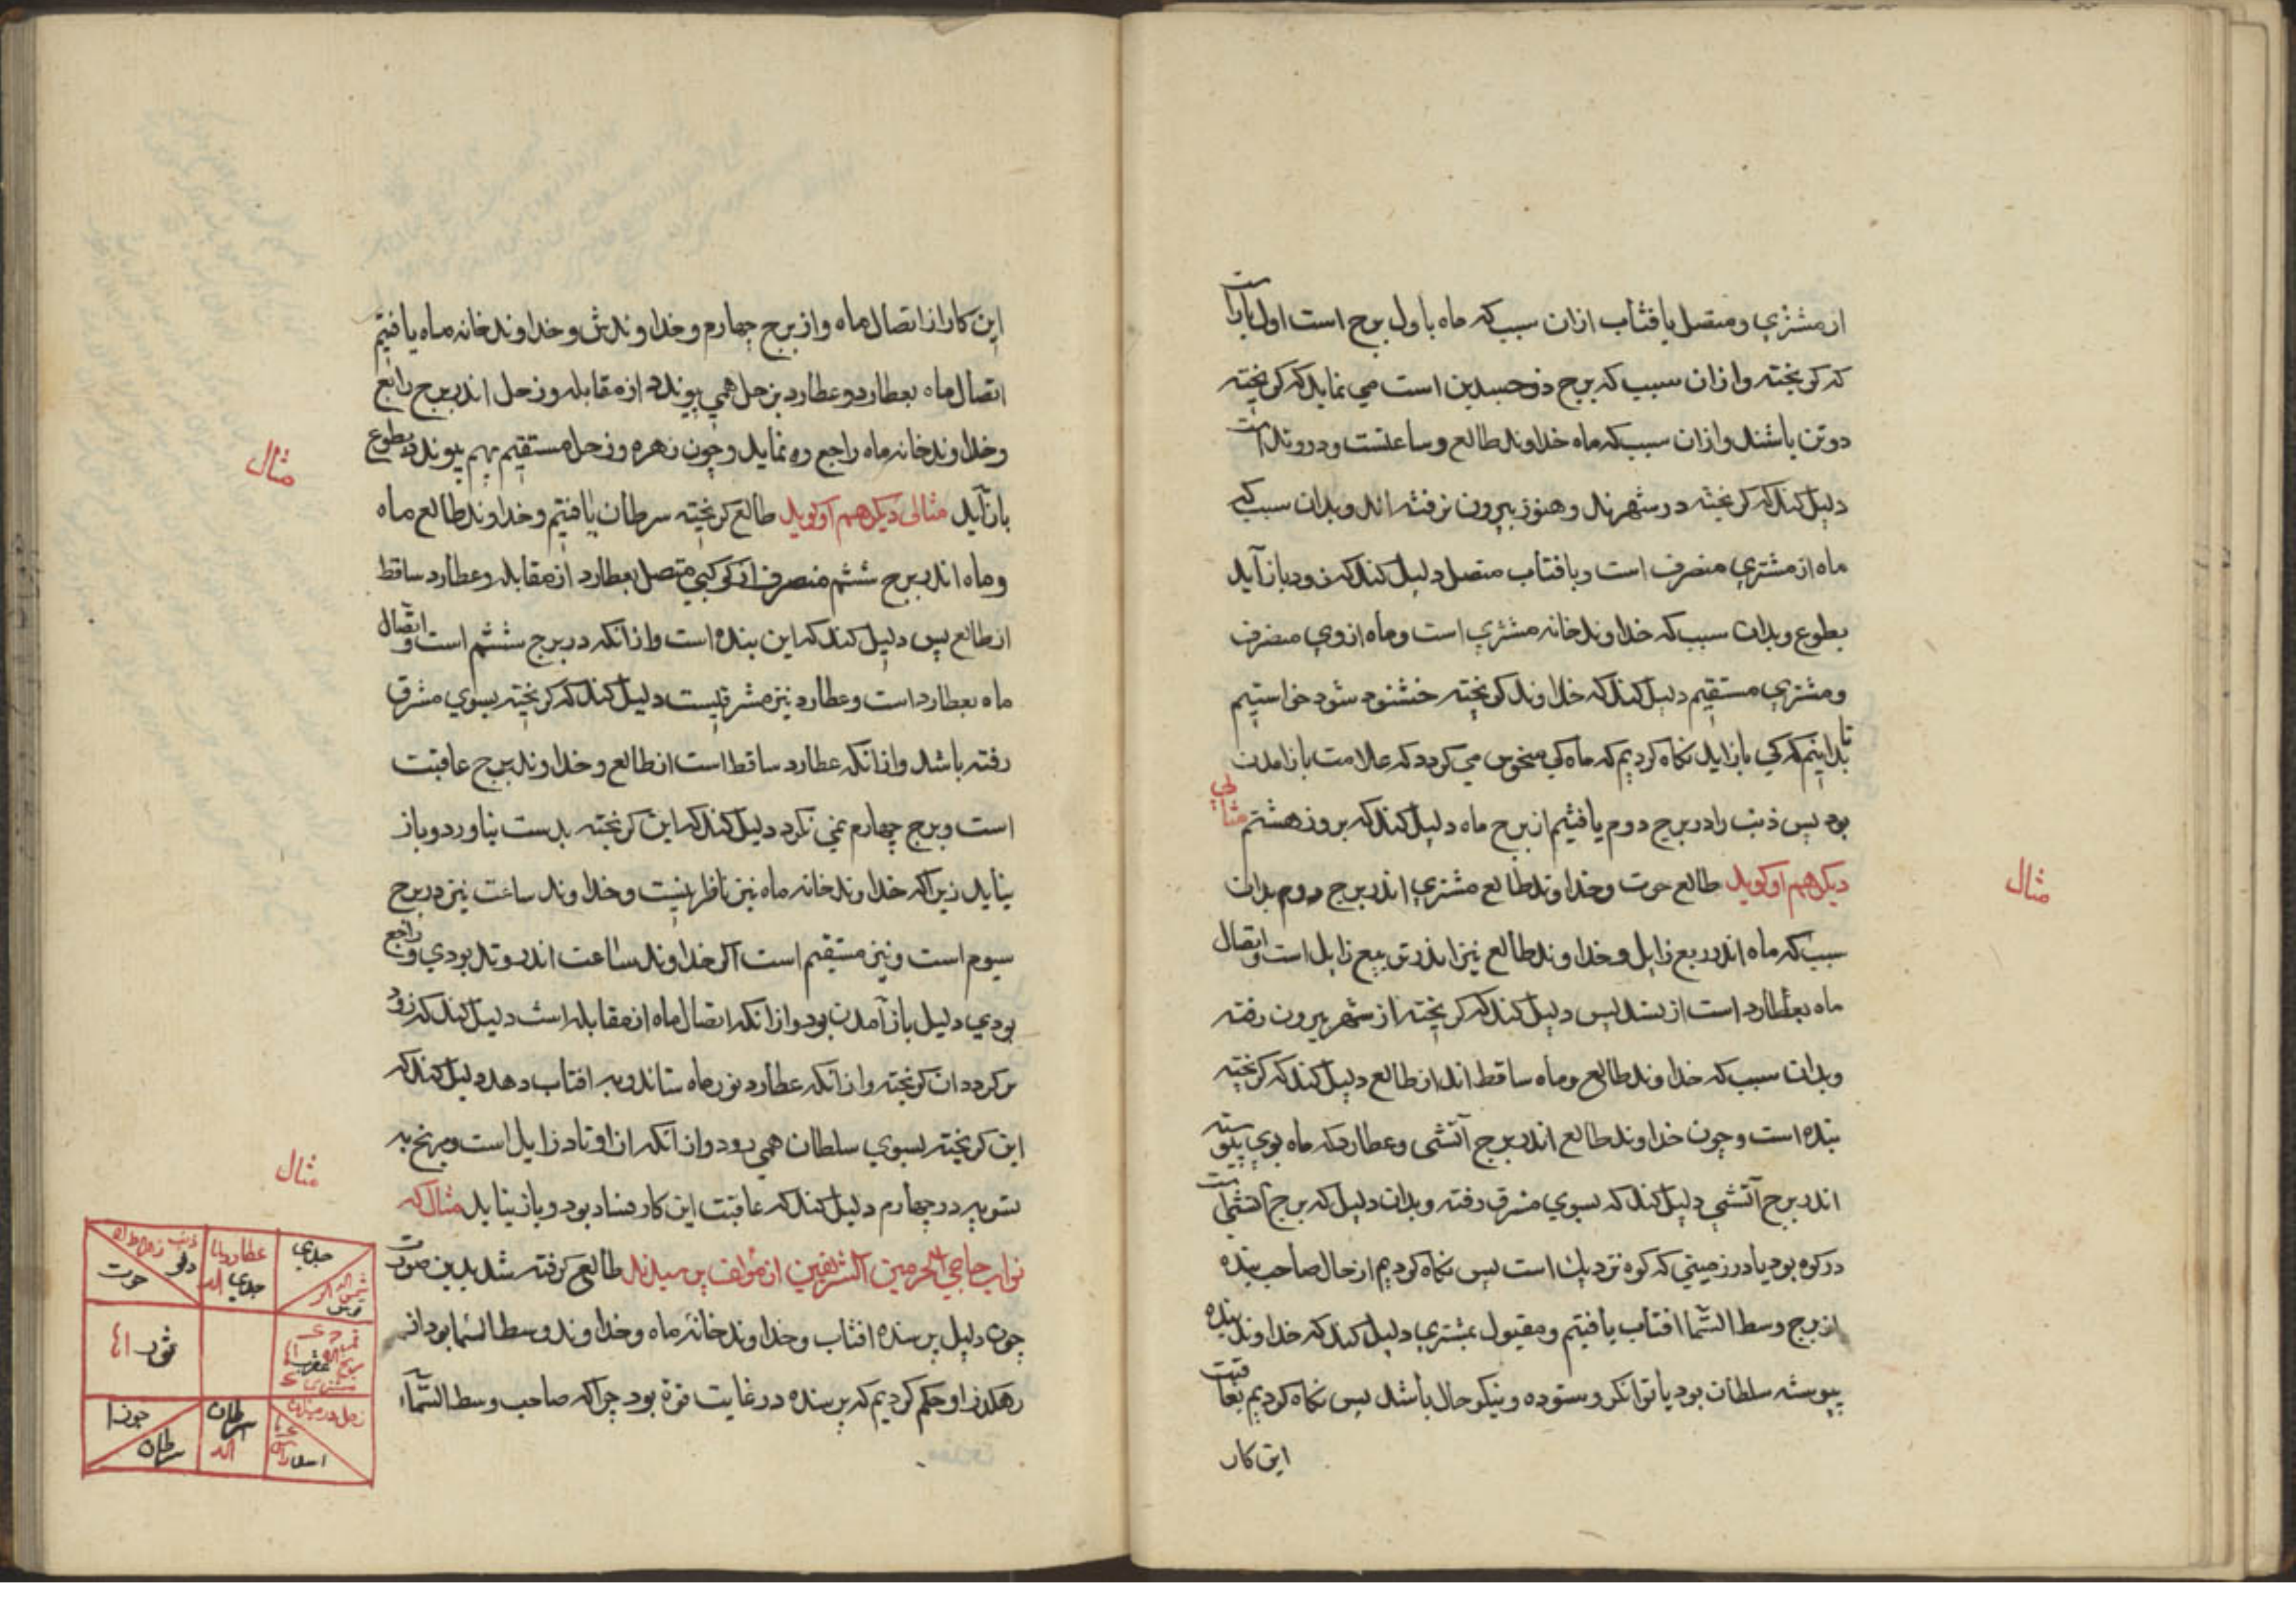 از مشتری و متصل بافتاب ازان سبب که ماه باول برج است اول
که کریخته وازان سبب که برج ذوجسدین است می نماید که کریخته
دوتن باشند وازان سبب که ماه خداوند طالع و ساعتست ودر وتد است
دلیل کند که کریخته در شهرند و هنوز بیرون نرفته اند وبدان سبب که
ماه از مشتری منصرف است وبافتاب متصل دلیل کند که زود باز آید
بطوع وبدان سبب که خداوند خانه مشتری است وماه ازوی منصرف
ومشتری مستقیم دلیل کند که خداوند کریخته خشنود شود خواستیم
تا بدانیم که کی باز اید نکاه کردیم که ماه کی منحوس می کردد که علامت باز امدن
بود پس ذنب را در برج دوم یافتیم از برج ماه دلیل کند که بروز هشتم مثالی
دیکر هم او کوید طالع حوت وخداوند طالع مشتری اندر برج دوم بدان
مثال
سبب که ماه اندر ربع زایل وخداوند طالع نیز اندر ربع زایل است واتصال
ماه بعطارد است از تسدیس دلیل کند که کریخته از شهر بیرون رفته
وبدان سبب که خداوند طالع وماه ساقط اند از طالع دلیل کند که کریخته
بنده است وچون خداوند طالع اندر برج آتشی وعطارد که ماه بوی پیوسته
اندر برج آتشی دلیل کند که بسوی مشرق رفته وبدان دلیل که برج آتشی است
در کوه بود یا در زمینی که کوه نزدیك است پس نکاه کردیم از حال صاحب بنده
از برج وسط السّما افتاب یافتیم ومقبول بمشتری دلیل کند که خداوند بنده
پیوسته سلطان بود یا توانکر وستوده ونیکو حال باشد پس نکاه کردیم بعاقبت
این کار
این کار از اتصال ماه واز برج چهارم وخداوندش وخداوند خانه ماه یافتیم
اتصال ماه بعطارد وعطارد بزحل همی پیوندد از مقابله وزحل اندر برج رابع
وخداوند خانه ماه راجع ره نماید وچون زهره وزحل مستقیم بهم پیوندد بطوع
مثال
باز آید مثالی دیکر هم او کوید طالع کریخته سرطان یافتیم وخداوند طالع ماه
وماه اندر برج ششم منصرف از کوکبی متصل بعطارد از مقابله وعطارد ساقط
از طالع پس دلیل کند که این بنده است وازانکه در برج ششم است واتصال
ماه بعطارد است وعطارد نیز مشرقیست دلیل کند که کریخته بسوی مشرق
رفته باشد وازانکه عطارد ساقط است از طالع وخداوند برج عاقبت
است وبرج چهارم نمی نکرد دلیل کند که این کریخته بدست نیاورد وباز
نیاید زیراکه خداوند خانه ماه نیز ناظر نیست وخداوند ساعت نیز در برج
سیوم است ونیز مستقیم است اکر خداوند ساعت اندر وتد بودی وراجع
بودی دلیل باز آمدن بود وازانکه اتصال ماه از مقابله است دلیل کند که زود
بر کردد ان کریخته وازانکه عطارد نور ماه ستاند وبه افتاب دهد دلیل کند که
این کریخته بسوی سلطان همی رود وازانکه از اوتاد زایل است ومریخ به
مثال
تسویه در چهارم دلیل کند که عاقبت این کار فساد بود وباز نیاید مثال که
نواب حاجی الحرمین الشریفین از مؤلف پرسیدند طالع کرفته شد بدین صورت
چون دلیل پرسنده افتاب وخداوند خانه ماه وخداوند وسط السّما بود از
رهکذر او حکم کردیم که پرسنده در غایت قوّة بود چراکه صاحب وسط السّماء
جدی
جدی
دلو
حوت
قوس
عقرب
ثور
سرطان
جوزا
سرطان
اسد